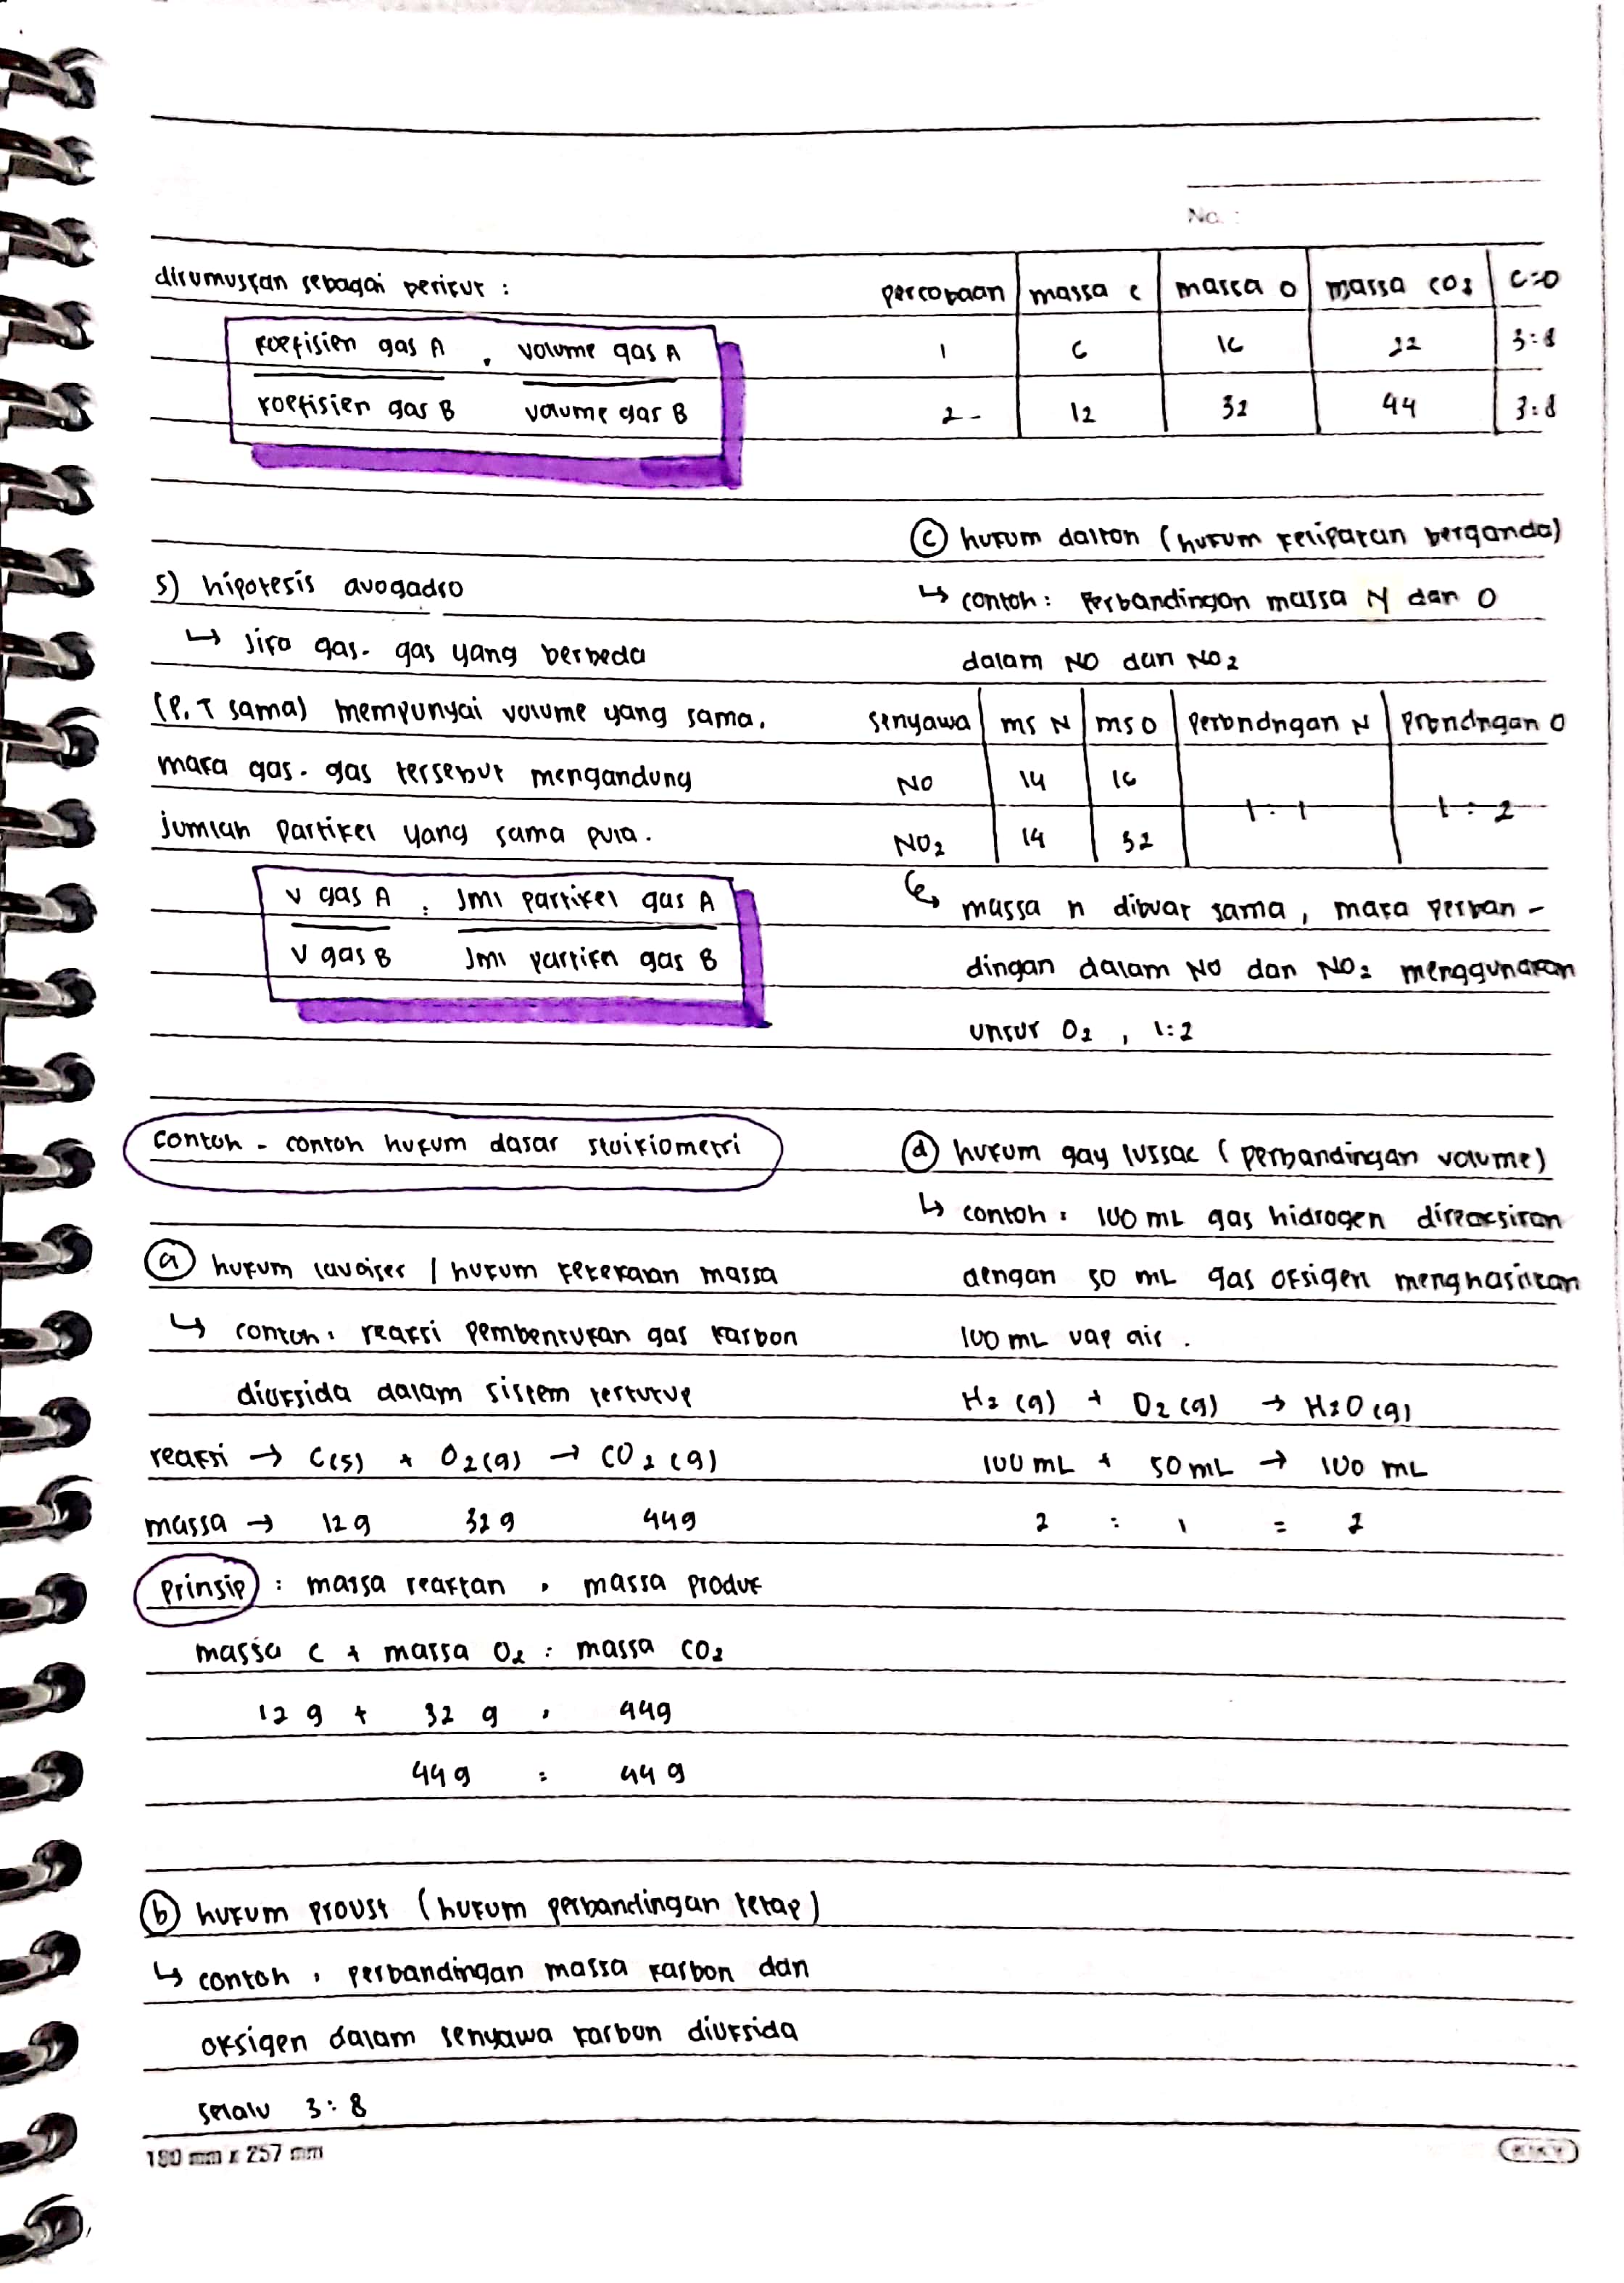 No. :
dirumuskan sebagai berikut :
koefisien gas A = volume gas A
koefisien gas B volume gas B
5) hipotesis avogadro
↳ Jika gas-gas yang berbeda
(P, T sama) mempunyai volume yang sama,
maka gas-gas tersebut mengandung
jumlah partikel yang sama pula.
V gas A = Jml partikel gas A
V gas B Jml partikel gas B
contoh - contoh hukum dasar stoikiometri
(a) hukum lavoiser / hukum kekekalan massa
↳ contoh : reaksi pembentukan gas karbon
dioksida dalam sistem tertutup
reaksi → C(s) + O2(g) → CO2(g)
massa → 12g 32g 44g
prinsip : massa reaktan = massa produk
massa C + massa O2 = massa CO2
12 g + 32 g = 44g
44g = 44g
(b) hukum proust (hukum perbandingan tetap)
↳ contoh : perbandingan massa karbon dan
oksigen dalam senyawa karbon dioksida
selalu 3:8
percobaan massa C massa O massa CO2 C=O
1 6 16 22 3:8
2 - 12 32 44 3:8
(c) hukum dalton (hukum kelipatan berganda)
↳ contoh : Perbandingan massa N dan O
dalam NO dan NO2
senyawa ms N ms O Perbndngan N Prbndngan O
NO 14 16
1 : 1 1 : 2
NO2 14 32
↳ massa n dibuat sama, maka perban -
dingan dalam NO dan NO2 menggunakan
unsur O2 , 1:2
(d) hukum gay lussac (perbandingan volume)
↳ contoh : 100 mL gas hidrogen direaksikan
dengan 50 mL gas oksigen menghasilkan
100 mL uap air .
H2 (g) + O2 (g) → H2O (g)
100 mL + 50 mL → 100 mL
2 : 1 = 2
180 mm x 257 mm
KIKY